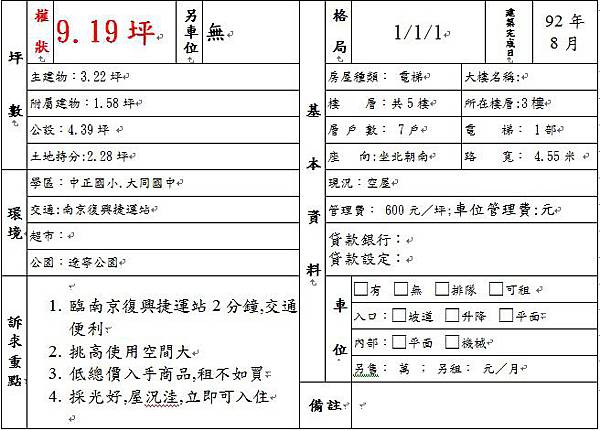 坪數
權狀
9.19坪
另車位
無
主建物：3.22 坪
附屬建物：1.58 坪
公設：4.39 坪
土地持分:2.28 坪
環境
學區：中正國小.大同國中
交通:南京復興捷運站
超市：
公園：遼寧公園
訴求重點
1. 臨南京復興捷運站 2 分鐘,交通
便利
2. 挑高使用空間大
3. 低總價入手商品,租不如買
4. 採光好,屋況洼,立即可入住
基本資料
格局
1/1/1
建築完成日
92 年
8 月
房屋種類： 電梯
大樓名稱:
樓 層：共 5 樓
所在樓層:3 樓
層 戶 數： 7 戶
電 梯： 1 部
座 向:坐北朝南
路 寬： 4.55 米
現況：空屋
管理費： 600 元／坪;車位管理費:元
貸款銀行：
貸款設定：
車位
□有 □無 □排隊 □可租
入口：□坡道 □升降 □平面
內部：□平面 □機械
另售： 萬 ； 另租： 元／月
備註